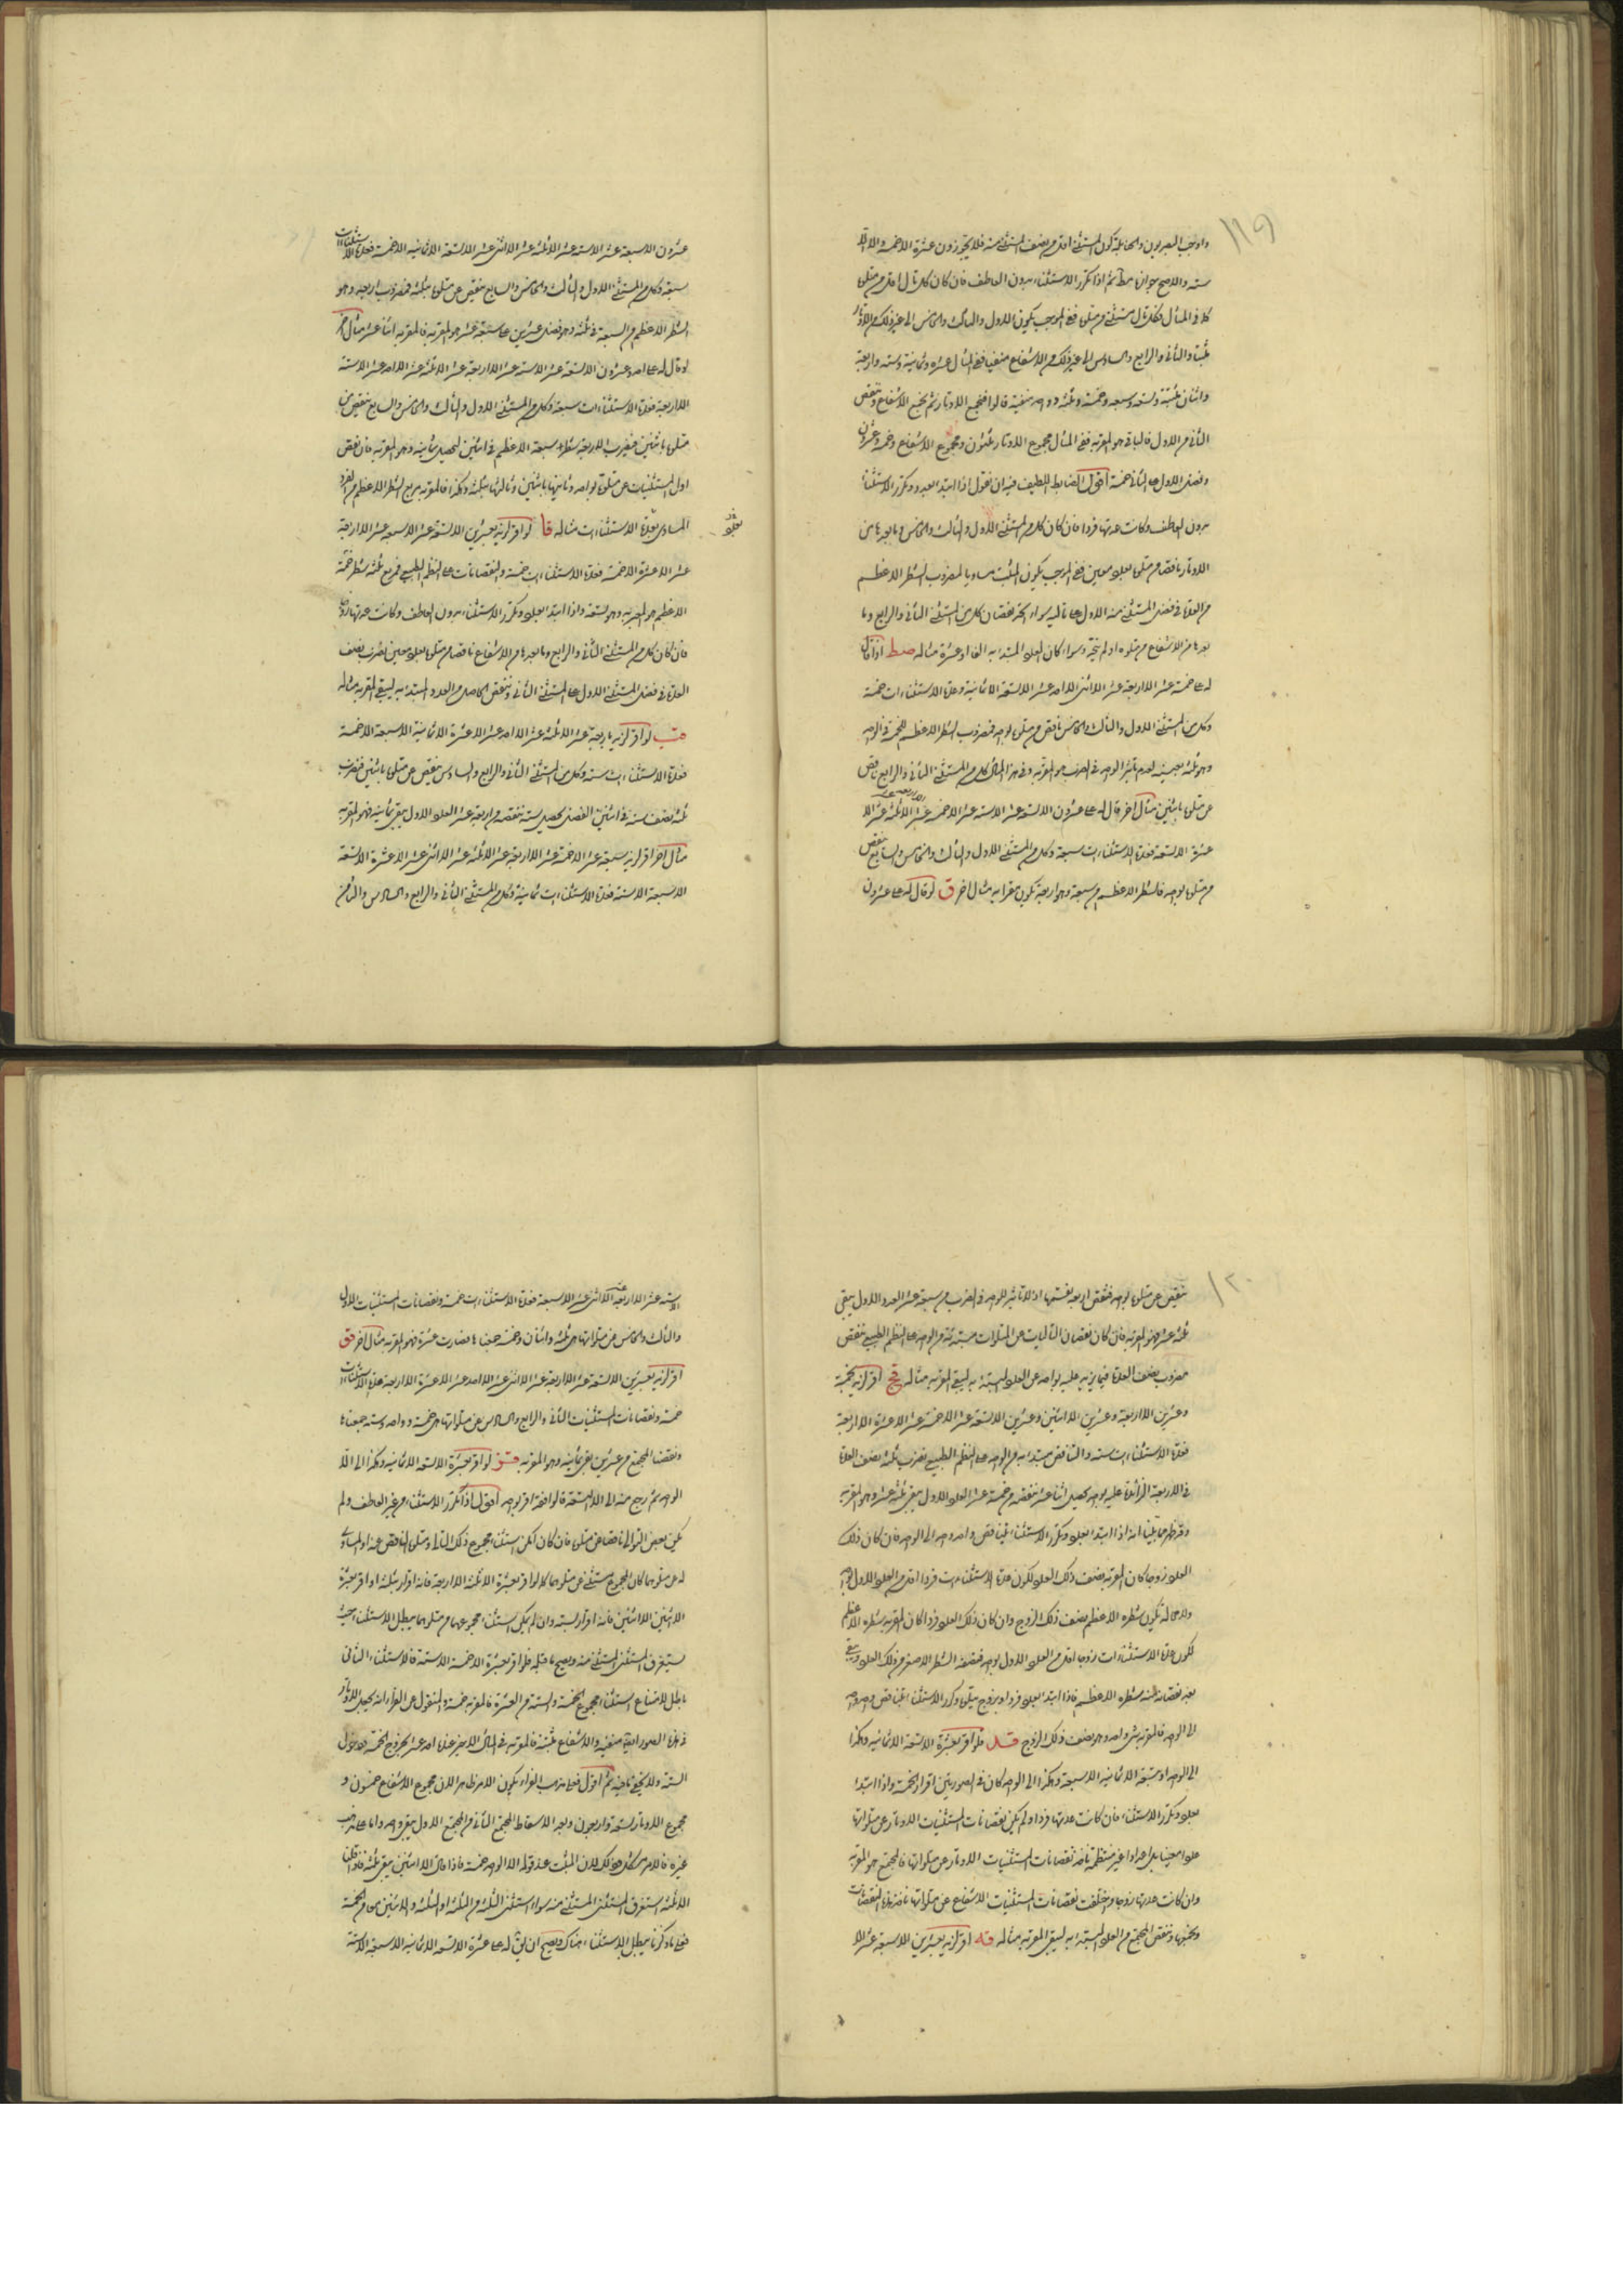 ١١٩
واوجب البصريون والحنابلة كون المستثنى اقل من نصف المستثنى منه فلا يجوزون عشرة الا خمسة والا
ستة والاصح جوازها مطلقا ثم اذا تكرر الاستثناء بدون العاطف فان كان كل تال اقل من متلوه
كما في المثال فكل تال مستثنى من متلوه ففي الموجب يكون الاول والثالث والخامس الى غير ذلك من الاوتار
مثبتا والثاني والرابع والسادس الى غير ذلك من الاشفاع منفيا ففي المثال عشرة وثمانية وستة واربعة
واثنان مثبتة وتسعة وسبعة وخمسة وثلثة وواحد منفية قالوا فنجمع الاوتار ثم نجمع الاشفاع وننقص
الثاني من الاول فالباقي هو المقر به ففي المثال مجموع الاوتار ثلثون ومجموع الاشفاع خمسة وعشرون
وفضل الاول على الثاني خمسة اقول الضابط اللطيف فيه ان نقول اذا ابتدا بعدد وتكرر الاستثناء
بدون العاطف وكانت عدتها فردا فان كان كل من المستثنى الاول والثالث والخامس وما بعدها من
الاوتار ناقصا من متلوه بعدد معين ففي الموجب يكون المثبت مساويا لمضروب الشطر الاعظم
من العدة في فضل المستثنى منه الاول على تاليه سواء اتحد نقصان كل من المستثنى الثاني والرابع وما
بعدها من الاشفاع من متلوه او لم يتحد وسواء كان العدد المبتدا به الفا او عشرة مثاله صط اذا قال
له علي خمسة عشر الا اربعة عشر الا اثنى عشر الا احد عشر الا تسعة الا ثمانية وعدة الاستثناءات خمسة
وكل من المستثنى الاول والثالث والخامس ناقص من متلوه بواحد فمضروب الشطر الاعظم للخمسة في الواحد
وهو ثلثة بعينه لعدم تاثير الواحد في الضرب هو المقر به وفي هذا المثال كل من المستثنى الثاني والرابع ناقص
عن متلوه باثنين مثال اخر قال له علي عشرون الا تسعة عشر الا ستة عشر الا خمسة عشر الا ثلثة عشر الا
عشرة الا تسعة فعدة الاستثناءات سبعة وكل من المستثنى الاول والثالث والخامس والسابع ينقص
من متلوه بواحد فالشطر الاعظم من سبعة وهو اربعة يكون مقرا به مثال اخر ق لو قال له علي عشرون
عشرون الا سبعة عشر الا ستة عشر الا ثلثة عشر الا اثنى عشر الا تسعة الا ثمانية الا خمسة فعدة الاستثناءات
سبعة وكل من المستثنى الاول والثالث والخامس والسابع ينقص عن متلوه بثلثة فمضروب اربعة وهو
الشطر الاعظم من السبعة في ثلثة وهو فضل عشرين على سبعة عشر هو المقر به فالمقر به اثنا عشر مثال اخر
لو قال له علي احد وعشرون الا تسعة عشر الا ستة عشر الا اربعة عشر الا ثلثة عشر الا احد عشر الا ستة
الا اربعة فعدة الاستثناءات سبعة وكل من المستثنى الاول والثالث والخامس والسابع ينقص عن
متلوه باثنين فيضرب الاربعة شطر سبعة الاعظم في اثنين ليحصل ثمانية وهو المقر به فان نقص
اول المستثنيات عن متلوه بواحد وثانيها باثنين وثالثها بثلثة وهكذا فالمقر به مربع الشطر الاعظم من الفرد
المساوي لعدة الاستثناءات مثاله قا لو اقر لزيد بعشرين الا تسعة عشر الا سبعة عشر الا اربعة
عشر الا عشرة الا خمسة فعدة الاستثناءات خمسة والنقصانات على النظم الطبيعي فمربع ثلثة شطر خمسة
الاعظم هو المقر به وهو تسعة واذا ابتدا بعدد وتكرر الاستثناء بدون العاطف وكانت عدتها زوجا
فان كان كل من المستثنى الثاني والرابع وما بعدها من الاشفاع ناقصا من متلوه بعدد معين نضرب نصف
العدة في فضل المستثنى الاول على المستثنى الثاني وننقص الحاصل من العدد المبتدا به ليبقى المقر به مثاله
قب لو اقر لزيد باربعة عشر الا ثلثة عشر الا احد عشر الا عشرة الا ثمانية الا سبعة الا خمسة
فعدة الاستثناءات ستة وكل من المستثنى الثاني والرابع والسادس ينقص عن متلوه باثنين فنضرب
ثلثة نصف ستة في اثنين الفضل يحصل ستة ننقصه من اربعة عشر العدد الاول يبقى ثمانية فهو المقر به
مثال اخر اقر لزيد بسبعة عشر الا خمسة عشر الا اربعة عشر الا ثلثة عشر الا اثنى عشر الا عشرة الا تسعة
الا سبعة الا ستة فعدة الاستثناءات ثمانية وكل من المستثنى الثاني والرابع والسادس والثامن
١٢٠
ينقص عن متلوه بواحد فننقص اربعة نفسها اذ لا تاثير للواحد في الضرب من سبعة عشر العدد الاول يبقى
ثلثة عشر فهو المقر به فان كان نقصان التاليات عن المتلوات مبتدئة من الواحد على النظم الطبيعي ننقص
مضروب نصف العدة فيما يزيد عليه بواحد عن العدد المبتدا به ليبقى المقر به مثاله قج اقر لزيد بخمسة
وعشرين الا اربعة وعشرين الا اثنين وعشرين الا تسعة عشر الا خمسة عشر الا عشرة الا اربعة
فعدة الاستثناءات ستة والتناقص مبتدا به من الواحد على النظم الطبيعي نضرب ثلثة نصف العدة
في الاربعة الزائدة عليه بواحد يحصل اثنا عشر ننقصه من خمسة عشر العدد الاول يبقى ثلثة عشر وهو المقر به
وقد ظهر مما بينا انه اذا ابتدا بعدد وتكرر الاستثناء بتناقص واحد واحد الى الواحد فان كان ذلك
العدد زوجا كان المقر به نصف ذلك العدد لكون عدة الاستثناءات فردا اقل من العدد الاول بواحد
ولا محالة يكون شطره الاعظم نصف ذلك الزوج وان كان ذلك العدد فردا كان المقر به شطره الاعظم
لكون عدة الاستثناءات زوجا اقل من العدد الاول بواحد فنصفه الشطر الاصغر من ذلك العدد ويبقى
بعد نقصانه منه شطره الاعظم فاذا ابتدا بعدد فرد او بزوج يتلوه وكرر الاستثناء بتناقص واحد واحد
الى الواحد فالمقر به شيء واحد وهو نصف ذلك الزوج قد فلو اقر بعشرة الا تسعة الا ثمانية وهكذا
الى الواحد او بتسعة الا ثمانية الا سبعة وهكذا الى الواحد كان في الصورتين اقرار الخمسة واذا ابتدا
بعدد وتكرر الاستثناء فان كانت عدتها فردا ولم يكن نقصانات المستثنيات الاوتار عن متلواتها
عددا معينا بل اعدادا غير منتظمة ناخذ نقصانات المستثنيات الاوتار عن متلواتها فالمجتمع هو المقر به
وان كانت عدتها زوجا واختلفت نقصانات المستثنيات الاشفاع عن متلواتها ناخذ هذه النقصانات
ونجمعها وننقص المجتمع من العدد المبتدا به ليبقى المقر به مثاله قه اقر لزيد بعشرين الا سبعة عشر الا
ستة عشر الا اربعة عشر الا اثنى عشر الا سبعة فعدة الاستثناءات خمسة ونقصانات المستثنيات الاول
والثالث والخامس عن متلواتها هي ثلثة واثنان وخمسة جمعناها فصارت عشرة فهو المقر به مثال اخر قو
اقر لزيد بعشرين الا تسعة عشر الا اربعة عشر الا اثنى عشر الا احد عشر الا عشرة الا اربعة هذه الاستثناءات
خمسة ونقصانات المستثنيات الثاني والرابع والسادس عن متلواتها هي خمسة وواحد وستة جمعناها
ونقصنا المجتمع من عشرين بقي ثمانية وهو المقر به قز لو اقر بعشرة الا تسعة الا ثمانية وهكذا الى الا
الواحد ثم رجع منه الى الا التسعة قالوا فقد اقر بواحد اقول اذا تكرر الاستثناء من غير العاطف ولم
يكن بعض التوالي ناقصا عن متلوه فان كان امكن استثناء مجموع ذلك التالي ومتلوه الناقص عنه او المساوي
له عن متلوهما كان المجموع مستثنى عن متلوهما كما لو اقر بعشرة الا ثلثة الا اربعة فانه اقرار بثلثة او اقر بعشرة
الا اثنين الا اثنين فانه اقرار بستة وان لم يمكن استثناء مجموعهما من متلوهما يبطل الاستثناء حيث
يستغرق المستثنى المستثنى منه ويصح ما قبله فلو اقر بعشرة الا خمسة الا ستة فالاستثناء الثاني
باطل لامتناع استثناء مجموع الخمسة والستة من العشرة فالمقر به خمسة والمنقول عن الفراء انه يجعل الاوتار
في هذه الصور ايضا منفية والاشفاع مثبتة فالمقر به في المثال الاخير عنده احد عشر بخروج الخمسة ودخول
الستة ولا يخفى ما فيه ثم اقول فعلى مذهب الفراء يكون الامر ظاهرا لان مجموع الاشفاع خمسون و
مجموع الاوتار تسعة واربعون وبعد الاسقاط المجتمع الثاني من المجتمع الاول يبقى واحد واما على مذهب
غيره فالامر مشكل هنالك لان المثبت عند قوله الا الواحد خمسة فاذا قال الا اثنين يبقى ثلثة فاذا قلنا
الا ثلثة استغرق المستثنى المستثنى منه سواء استثنى الثلثة من الثلثة او الثلثة والاثنين معا من الخمسة
فعلى ما ذكرنا يبطل الاستثناء هناك ويصح ان يق له علي عشرة الا تسعة الا ثمانية الا سبعة الا ستة